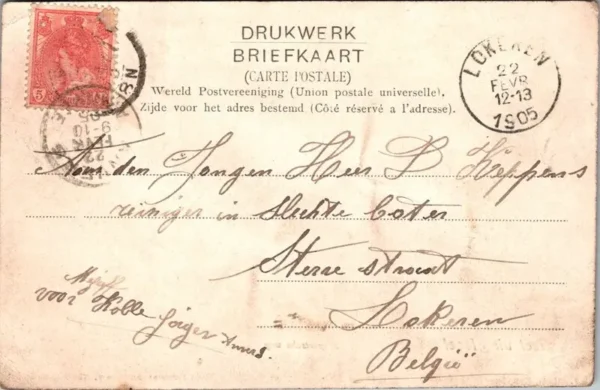 DRUKWERK
BRIEFKAART
(CARTE POSTALE)
Wereld Postvereeniging (Union postale universelle).
Zijde voor het adres bestemd (Côté réservé a l'adresse).
LOKEREN
22
FEVR
12-13
1905
5
9-10
22
Aan den Jongen Heer L Keppens
reiniger in Slechte boter
Sterre straat
Lokeren
België
voor Kolle